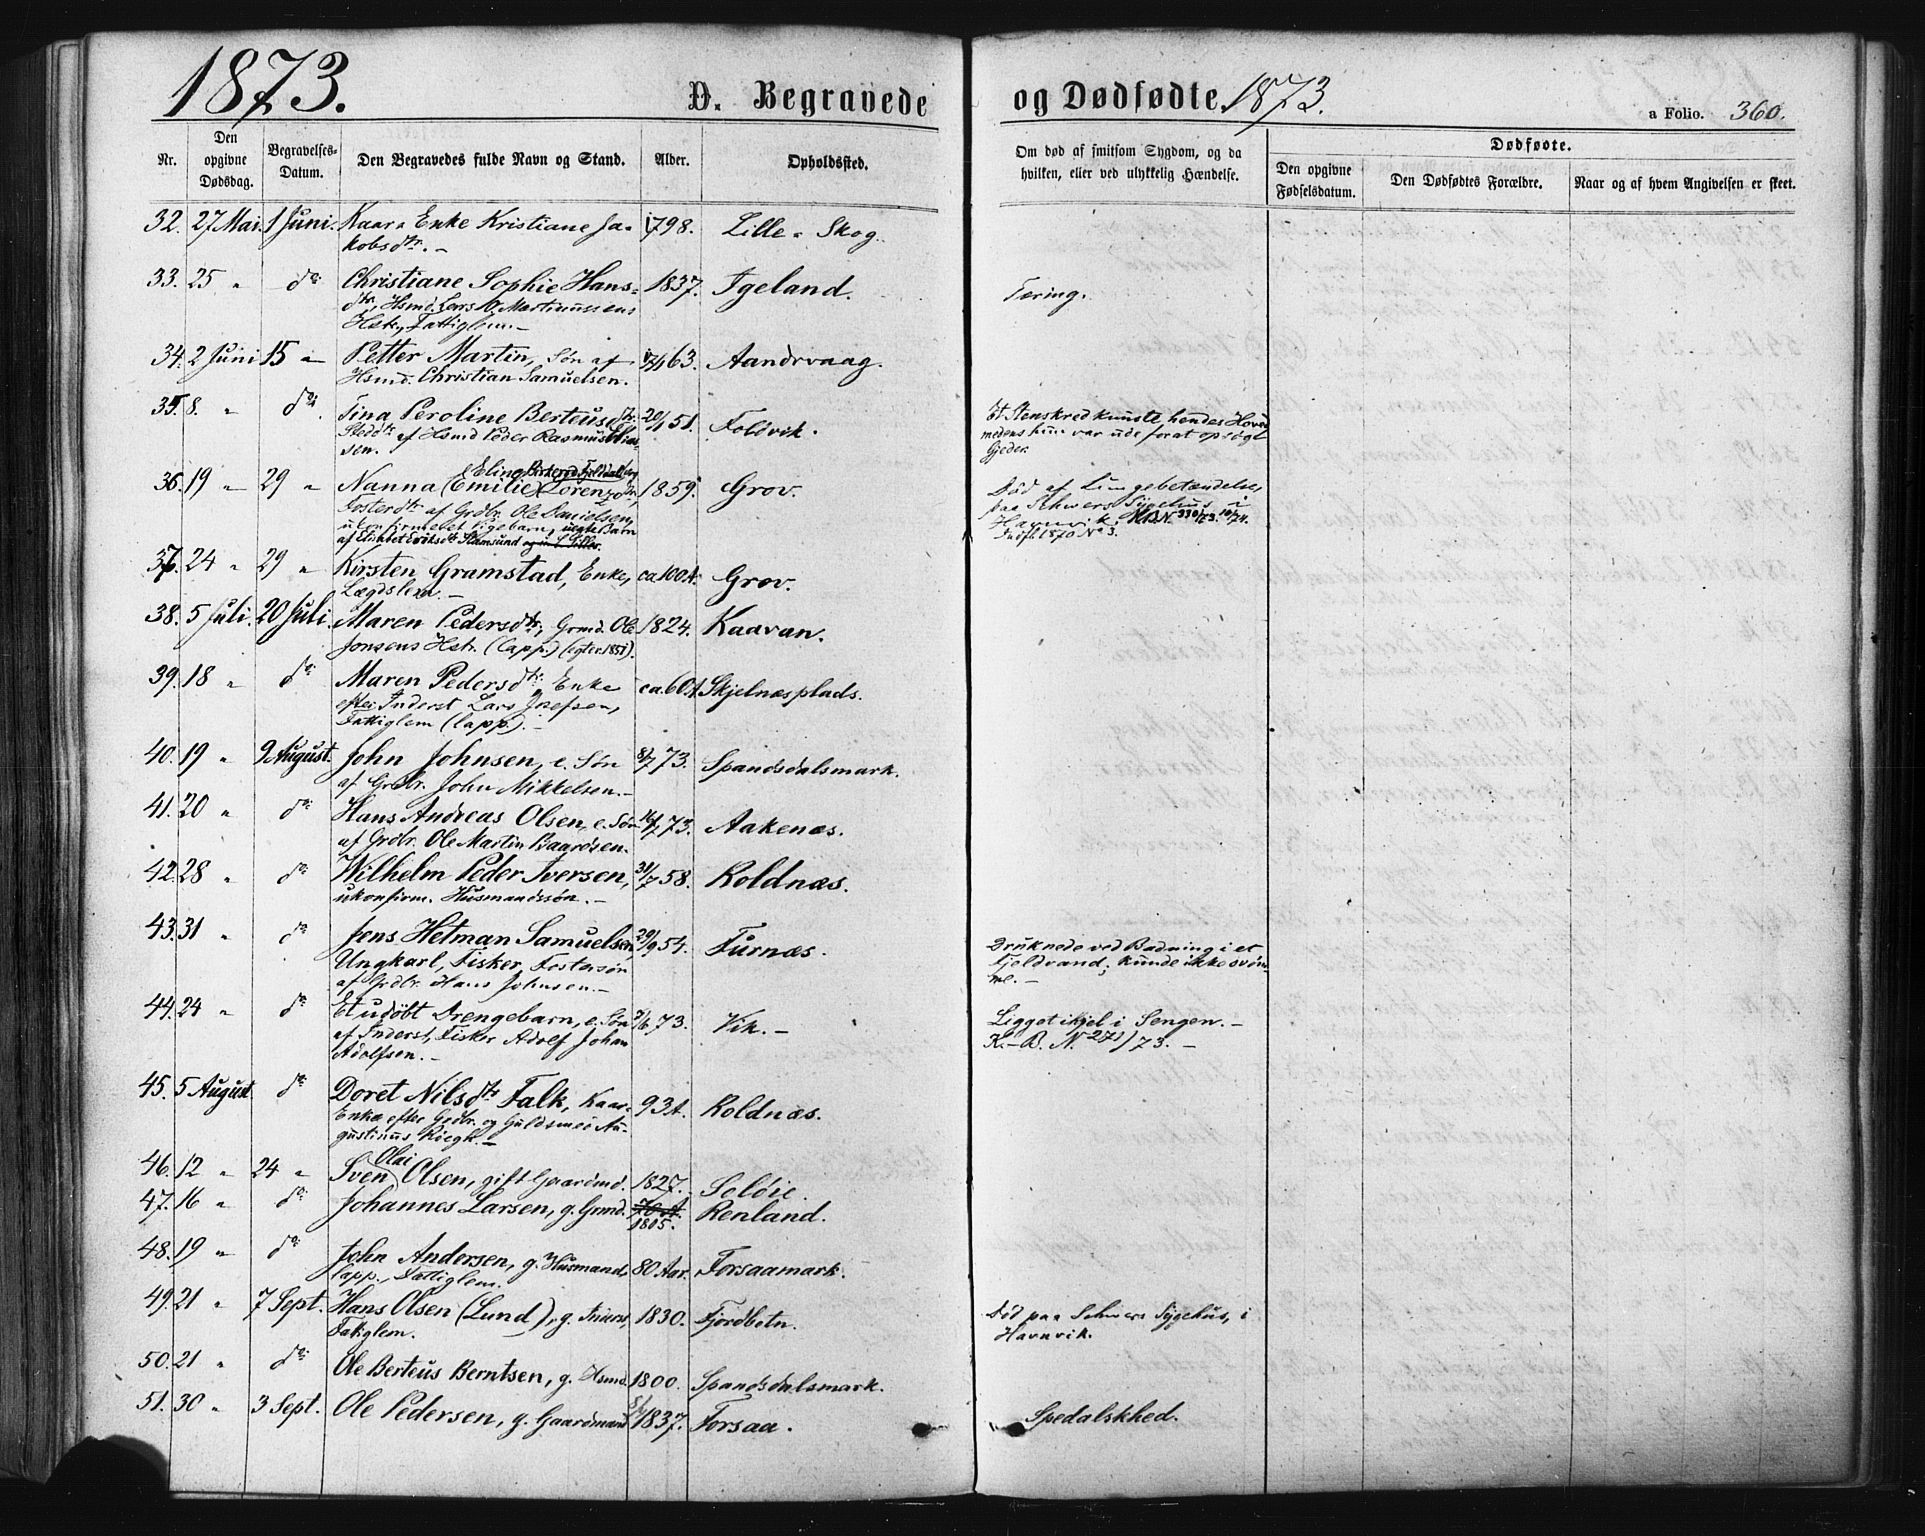 1873.
D. Begravede og Dødfødte 1873.
a Folio. 360.
Nr.
Den opgivne Dødsdag.
Begravelses-Datum.
Den Begravedes fulde Navn og Stand.
Alder.
Opholdssted.
Om død af smitsom Sygdom, og da hvilken, eller ved ulykkelig Hændelse.
Dødfødte.
Den opgivne Fødselsdatum.
Den Dødfødtes Forældre.
Naar og af hvem Angivelsen er skeet.
32. 27 Mai. 1 Juni. Kaar- Enke Kristiane Ja- 1798. Lille- Skog.
kobsdtr. -
33. 25 " do: Christiane Sophie Hans- 1837. Igeland. Tæring.
dtr, Hsmd. Lars M. Martinussens
Hstr., Fattiglem. -
34. 2 Juni 15 " Petter Martin, Søn af 63. Aandrvaag.
Hsmd. Christian Samuelsen.
35. 8. " do: Tina Peroline Berteusdtr. 20/1 51. Foldvik. Et Stenskred knuste hendes Hoved
Steddtr af Hsmd Peder Rasmus medens hun var ude for at opsøgt
sen. Gjeder.
36. 19 " 29 " Nanna (Emilie) Lorenzdtr, 1859. Grov. Død af Lungebetændelse,
Elina
Fosterdtr. af Grdbr. Ole Danielsen, paa Schwers Sygehus i
ukonfirmeret Pigebarn, uægte Barn Havnvik.
af Elisabet Eriksdtr Stamsund Indfl. 1870 No 3.
37. 24 " 29 " Kirsten Gramstad, Enke, ca 100 A. Grov.
Lægdslem. -
38. 5 Juli. 20 Juli. Maren Pedersdtr, Grmd. Ole 1824. Kaavan.
Jonsens Hstr. (lapp.) (egter 1851).
39. 18 " do: Maren Pedersdtr: Enke ca. 60 A. Skjelnæsplads.
efter Inderst Lars Josefsen,
Fattiglem (lapp.). -
40. 19 " 9 August. John Johnsen, e. Søn 8/7 73. Spandsdalsmark.
af Grdbr. John Mikkelsen. -
41. 20 " do: Hans Andreas Olsen, e. Søn 16/7 73. Aakenæs.
af Grdbr. Ole Martin Baardsen.
42. 28 " do: Wilhelm Peder Iversen, 31/7 58. Roldnæs.
ukonfirm. Husmandssøn. -
43. 31 " do: Jens Hetman Samuelsen, 29/9 54. Furnæs. Druknede ved Badning i et
Ungkarl, Fisker, Fostersøn Fjeldvand; kunde ikke svøm-
af Grdbr. Hans Johnsen. - me. -
44. 24 " do: Et udøbt Drengebarn, e. Søn 7/6 73. Vik. - Ligget ihjel i Sengen. -
af Inderst, Fisker Adolf Johan K. - B. N. 271/73. -
Adolfsen. -
45. 5 August do: Doret Nilsdtr Falk, Kaar- 93 A. Roldnæs.
Enke efter Grdbr. og Guldsmed Au-
gustinus Riegh. -
46. 12 " 24 " Sven Olai Olsen, gift Gaardmd. 1827. Soløie.
47. 16 " do: Johannes Larsen, g. Grmd. 70 A. Renland.
1805.
48. 19 " do: John Andersen, g. Husmand, 80 Aar. Forsaamark.
lapp., Fattiglem.
49. 21 " 7 Sept. Hans Olsen (Lund), g. Inderst, 1830. Fjordbotn. Død paa Schwers Sygehus, i
Fattiglem. Havnvik.
50. 21 " do: Ole Berteus Berntsen, g. Hsmd. 1800. Spandsdalsmark.
51. 30 " 3 Sept. Ole Pedersen, g. Gaardmand 1837. Forsaa. Spedalskhed.